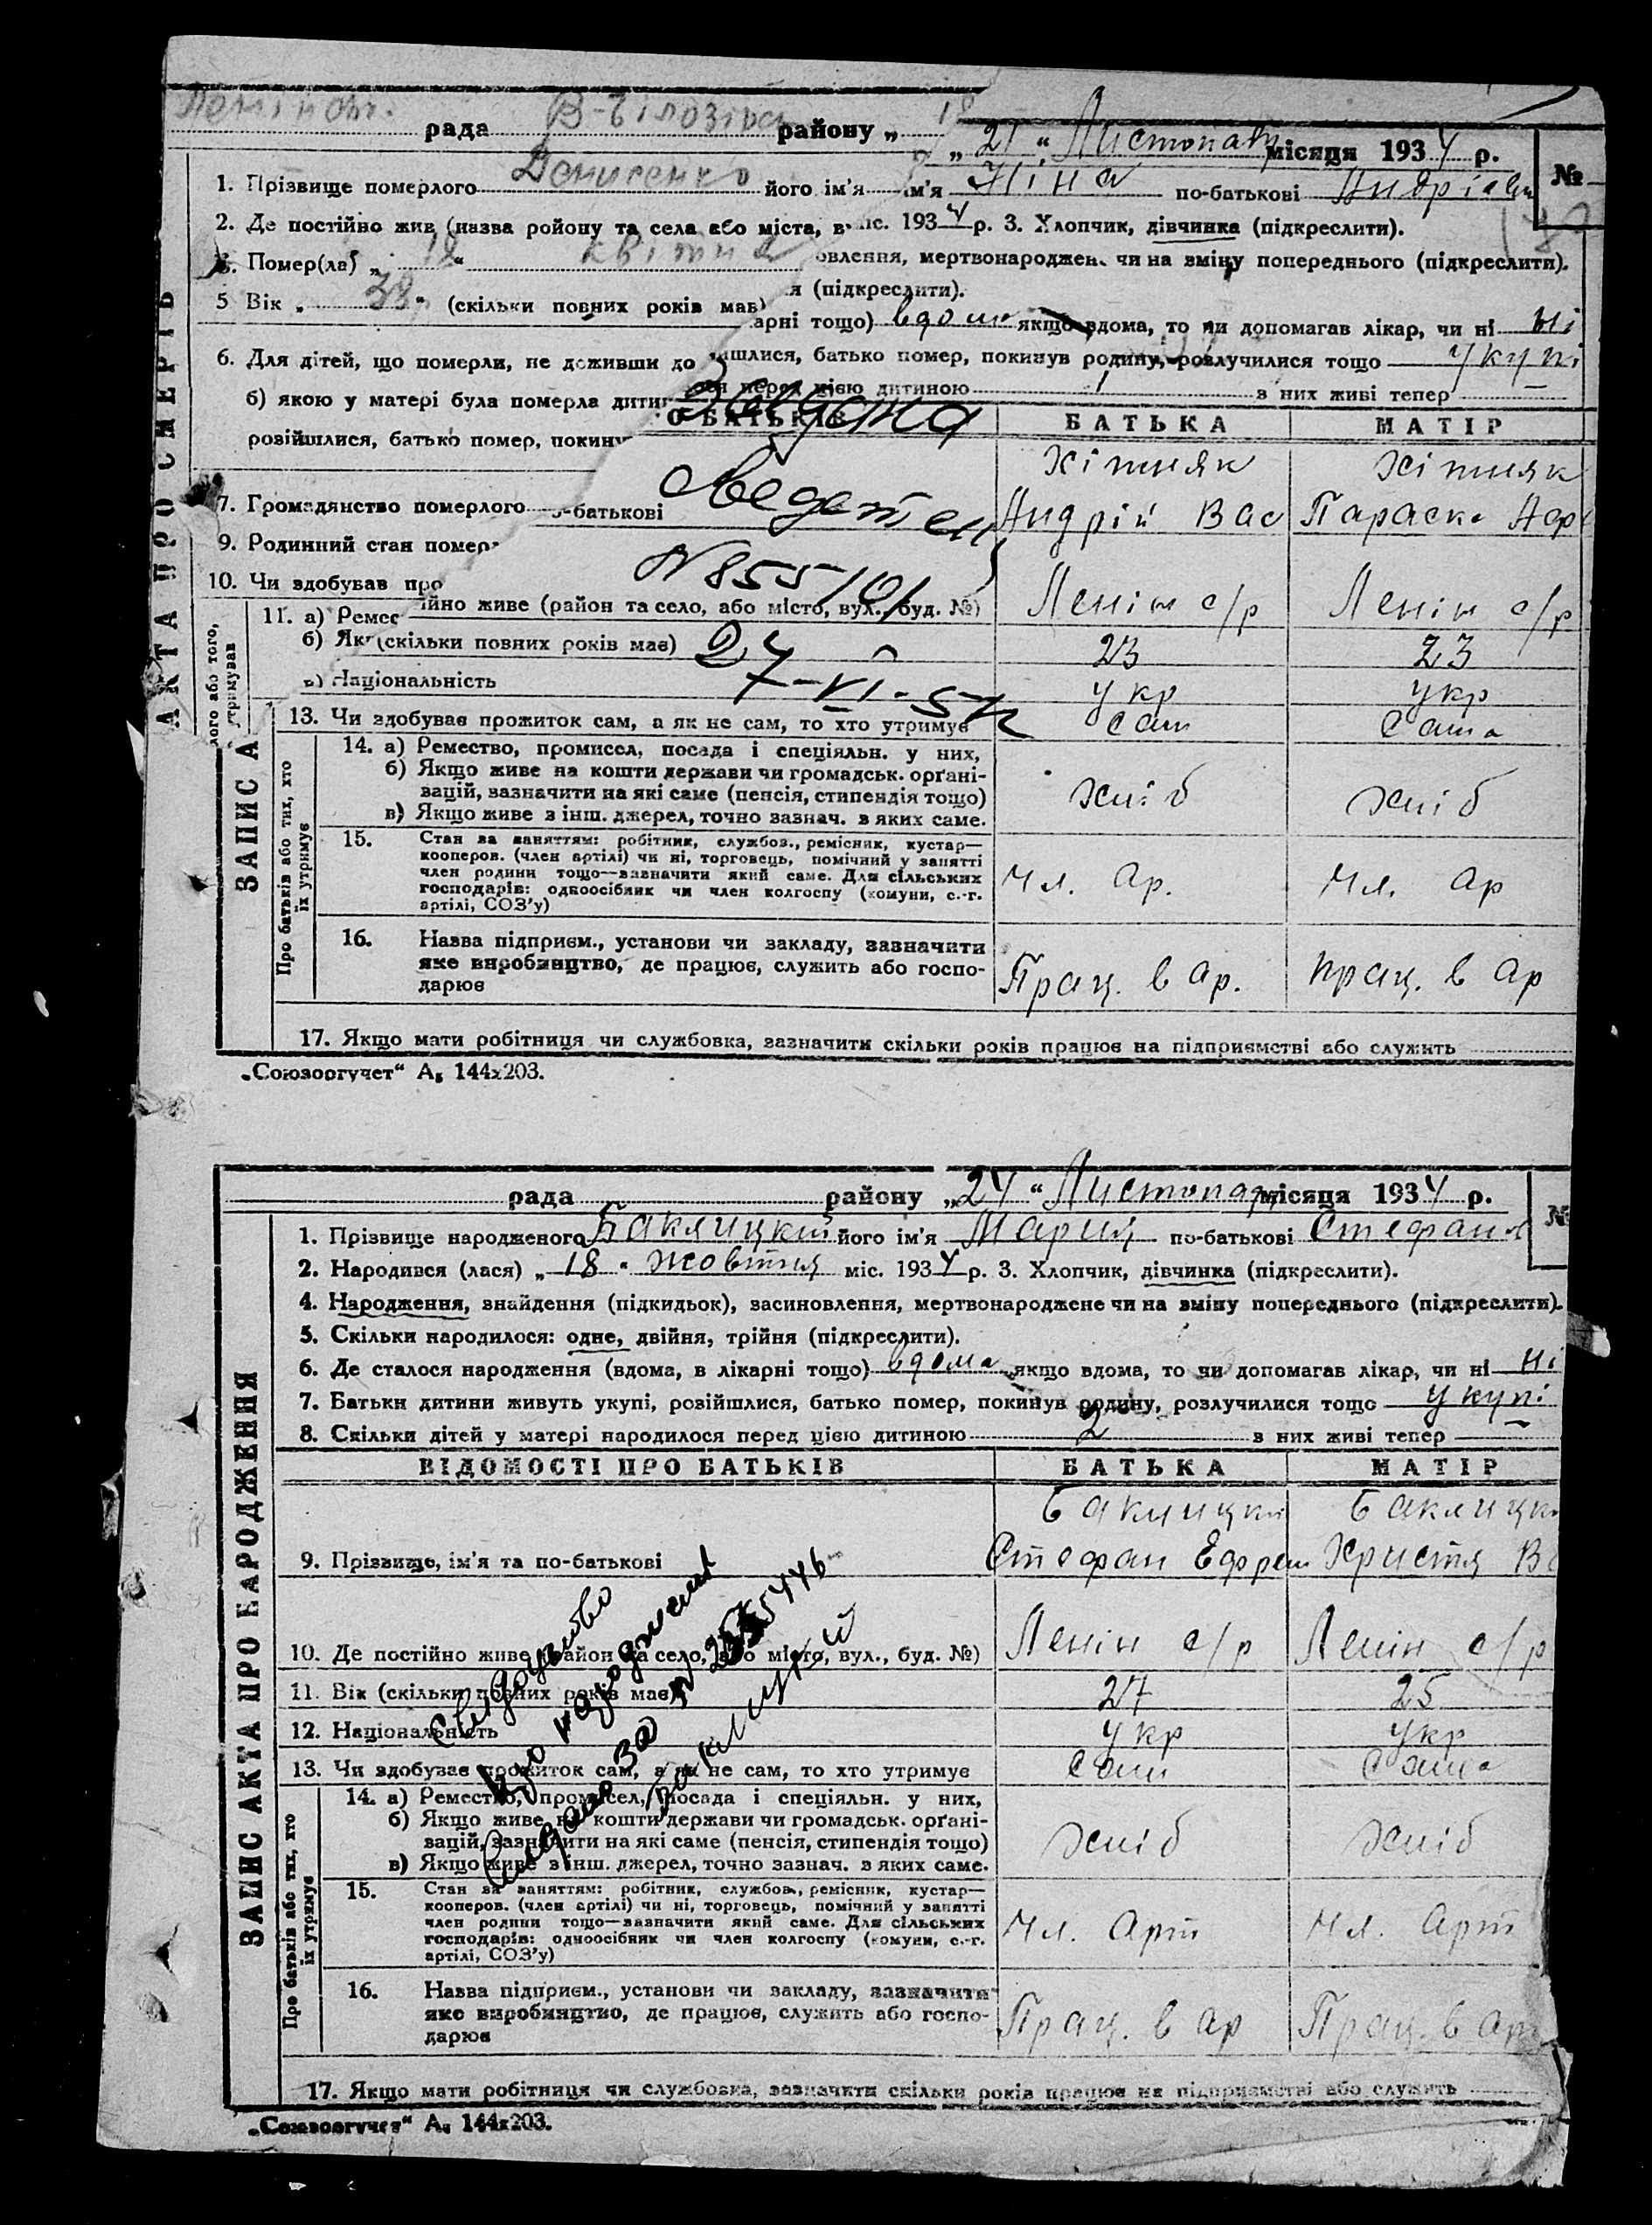 рада В-Білозірсь району „
„ 21 “ Листопад місяця 1934 р.
№
1. Прізвище померлого Денисенко його ім'я
ім'я Ніна по-батькові Андріівн
2. Де постійно жив (назва ройону та села або міста, в
іс. 1934 р. 3. Хлопчик, дівчинка (підкреслити).
Помер(ла) „ 18 “ квітня
овлення, мертвонароджен. чи на зміну попереднього (підкреслити).
5 Вік „ 38 “ (скільки повних років має)
я (підкреслити).
арні тощо) вдома якщо вдома, то чи допомагав лікар, чи ні ні
6. Для дітей, що померли, не доживши до
ишлися, батько помер, покинув родину, розлучилися тощо укупі
б) якою у матері була померла дити
ся перед цією дитиною 1 з них живі тепер
О БАТЬКІВ БАТЬКА МАТІР
розійшлися, батько помер, покину
Хітняк Хітняк
7. Громадянство померлого
о-батькові Андрій Вас Параска
9. Родинний стан помер
10. Чи здобував про
N 855101
11. а) Ремес
ійно живе (район та село, або місто, вул., буд. №) Ленін с/р Ленін с/р
б) Як
(скільки повних років має) 23 23
24-VI-
в) Національність укр укр
13. Чи здобував прожиток сам, а як не сам, то хто утримує сам сама
14. а) Ремество, промисел, посада і спеціяльн. у них,
б) Якщо живе на кошти держави чи громадськ. органі-
зацій, зазначити на які саме (пенсія, стипендія тощо) хліб хліб
в) Якщо живе з інш. джерел, точно зазнач. з яких саме.
15. Стан за заняттям: робітник, службов., ремісник, кустар—
кооперов. (член артілі) чи ні, торговець, помічний у занятті
член родини тощо—зазначити який саме. Для сільських
господарів: одноосібник чи член колгоспу (комуни, с.-г.
артілі, СОЗ'у)
Чл. Ар. Чл. Ар
16. Назва підприєм., установи чи закладу, зазначити
яке виробництво, де працює, служить або госпо-
дарює
Прац. в ар. прац. в ар
17. Якщо мати робітниця чи службовка, зазначити скільки років працює на підприємстві або служить
АКТА ПРО СМЕРТЬ
ЗАПИС А
Про батьків або тих, хто
їх утримує
„Союзоргучет“ А₅ 144х203.
рада району „24“ Листопад місяця 1934 р.
№
1. Прізвище народженого Баклицкий його ім'я Мария по-батькові Стефан
2. Народився (лася) „ 18 “ жовтня міс. 1934 р. 3. Хлопчик, дівчинка (підкреслити).
4. Народження, знайдення (підкидьок), засиновлення, мертвонароджене чи на зміну попереднього (підкреслити).
5. Скільки народилося: одне, двійня, трійня (підкреслити).
6. Де сталося народження (вдома, в лікарні тощо) вдома якщо вдома, то чи допомагав лікар, чи ні ні
7. Батьки дитини живуть укупі, розійшлися, батько помер, покинув родину, розлучилися тощо укупі
8. Скільки дітей у матері народилося перед цією дитиною 2 з них живі тепер
ВІДОМОСТІ ПРО БАТЬКІВ БАТЬКА МАТІР
Баклицки Баклицки
9. Прізвище, ім'я та по-батькові Стефан Ефрем Христя В
10. Де постійно живе (район та село, або місто, вул., буд. №) Ленін с/р Ленін с/р
11. Вік (скільки повних років має) 27 25
12. Національність укр укр
13. Чи здобував прожиток сам, а як не сам, то хто утримує сам сама
14. а) Ремество, промисел, посада і спеціяльн. у них,
б) Якщо живе на кошти держави чи громадськ. органі-
зацій, зазначити на які саме (пенсія, стипендія тощо) хліб хліб
в) Якщо живе з інш. джерел, точно зазнач. з яких саме.
15. Стан за заняттям: робітник, службов., ремісник, кустар—
кооперов. (член артілі) чи ні, торговець, помічний у занятті
член родини тощо—зазначити який саме. Для сільських
господарів: одноосібник чи член колгоспу (комуни, с.-г.
артілі, СОЗ'у)
Чл. Арт Чл. Арт
16. Назва підприєм., установи чи закладу, зазначити
яке виробництво, де працює, служить або госпо-
дарює
Прац. в ар Прац. в арт
17. Якщо мати робітниця чи службовка, зазначити скільки років працює на підприємстві або служить
ЗАПИС АКТА ПРО НАРОДЖЕННЯ
Про батьків або тих, хто
їх утримує
Свидоцтво
про народження
за №
„Союзоргучет“ А₅ 144х203.